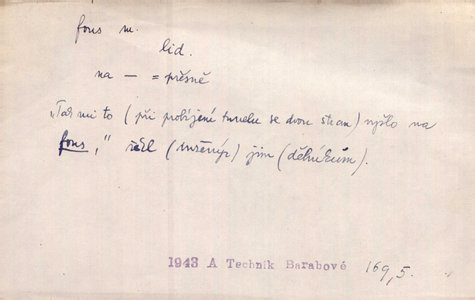 fous m.
lid.
na — = přesně
„Tak mi to (při probíjení tunelu se dvou stran) vyšlo na
fous," řekl (inženýr) jim (dělníkům).
1943 A Technik Barabové 169,5.